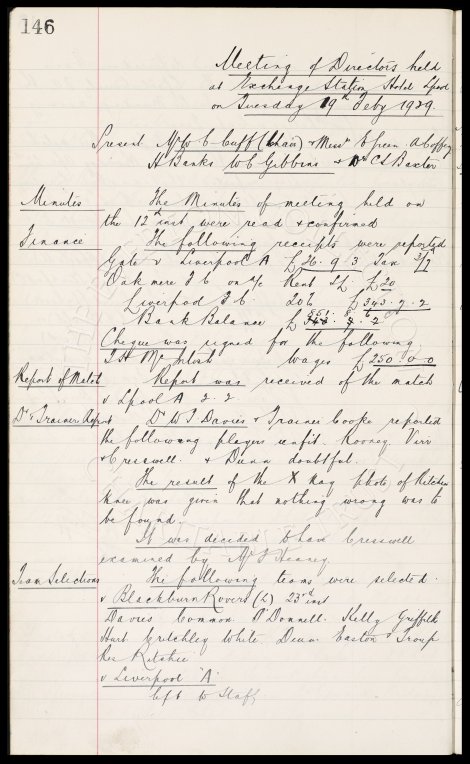 146
Meeting of Directors held
at Exchange Station Hotel Lpool
on Tuesday 19th Feby 1929.
Present Mr W C Cuff (Chair) & Messrs E Green A Coffey
H Banks W C Gibbins & Dr C S Baxter
Minutes The Minutes of meeting held on
the 12th inst were read & confirmed
Finance The following receipts were reported
Gate v Liverpool A £26. 9 3 Tax 3/7
Oakmere F C on a/c Rent £20
Liverpool F C. 20% £343. 7. 2
Bank Balance £
Cheque was signed for the following.
T H McIntosh Wages £250 0 0
Report of Match Report was received of the match
v Lpool A 2. 2
Dr & Trainer Report Dr W I Davies & Trainer Cooke reported
the following players unfit. Rooney Virr
& Cresswell. & Dunn doubtful.
The result of the X Ray photo of Ritchies
knee was given that nothing wrong was to
be found.
It was decided to have Cresswell
examined by Mr
Team Selections The following teams were selected.
v Blackburn Rovers (L) 23rd inst
Davies Common O'Donnell. Kelly Griffiths
Hart Critchley White Dunn Easton & Troup
Res Ritchie
v Liverpool 'A'
left to Staff